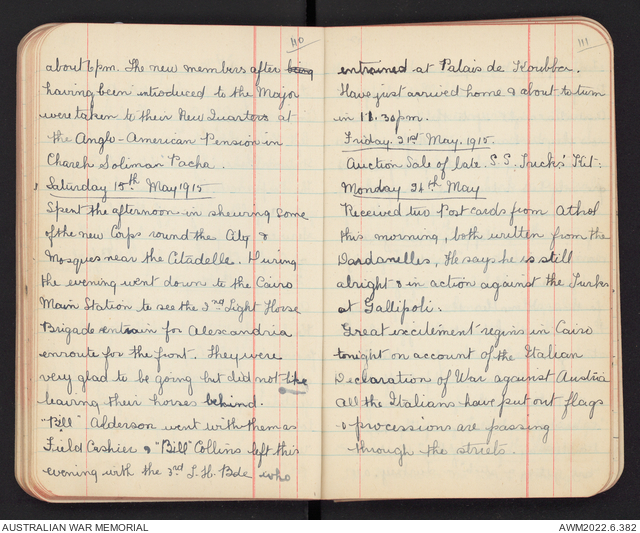 110
about 6 pm. The new members after being
having been introduced to the Major
were taken to their New Quarters at
the Anglo-American Pension in
Chareh Soliman Pacha.
Saturday 15th May 1915
Spent the afternoon in shewing some
of the new Corps round the City &
Mosques near the Citadelle. During
the evening went down to the Cairo
Main Station to see the 2nd Light Horse
Brigade entrain for Alexandria
enroute for the front. They were
very glad to be going but did not like
leaving their horses behind.
"Bill" Alderson went with them as
Field Cashier & "Bill" Collins left this
evening with the 3rd L. H. Bde who
111
entrained at Palais de Koubber.
Have just arrived home & about to turn
in 11.30pm.
Friday 21st May. 1915.
Auction Sale of late S.S. Tucks' Kit.
Monday 24th May
Received two Post cards from Athol
this morning, both written from the
Dardanelles, He says he is still
alright & in action against the Turks
at Gallipoli.
Great excitement regins in Cairo
tonight on account of the Italian
Declaration of War against Austria
All the Italians have put out flags
& processions are passing
through the streets.
AUSTRALIAN WAR MEMORIAL
AWM2022.6.382